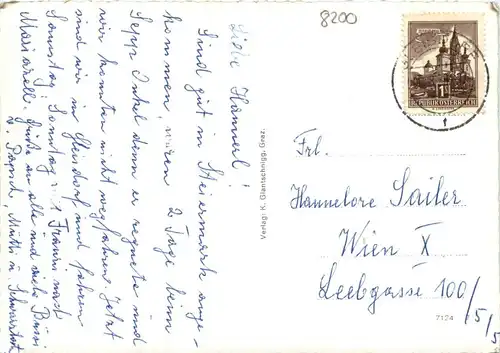 8200
Liebe Hannerl!
Sind gut in Steiermark ange-
kommen, waren 2 Tage beim
Sepp Onkel denn es regnete und
wir konnten nicht wegfahren. Jetzt
sind wir in Gleisdorf und fahren
Samstag Sonntag Franzi nach
Mariazell. Grüße an alle und viele Bussi
Verlag: K. Glantschnigg, Graz.
REPUBLIK ÖSTERREICH
Frl.
Hannelore Sailer
Wien X
Leebgasse 100/
/5/5
7124